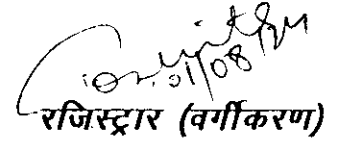 01/08/24
रजिस्ट्रार (वर्गीकरण)